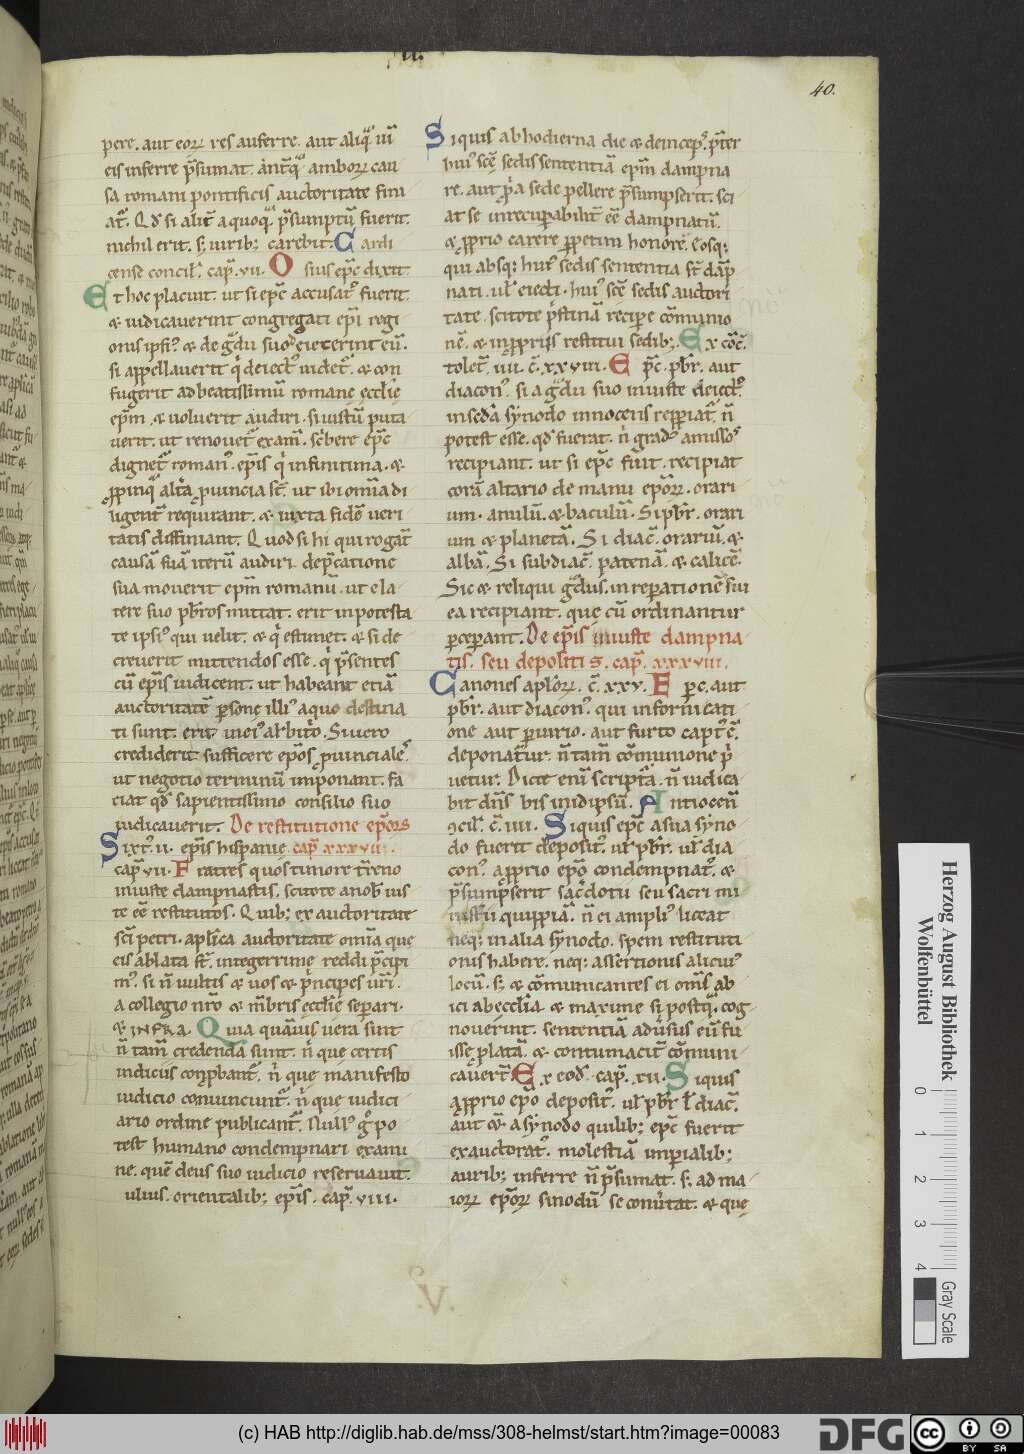 .II.
40.
pere. aut eorꝝ res auferre. aut aliq̃ iniĩ
eis inferre p̃sumat. anteq̃ amborꝝ cau
sa romani pontificis auctoritate fini
at͛. Qd̛ si alit͛ a quoq̃ p̃sumptũ fuerit.
nichil erit. sꝫ uiribꝫ carebit. Cardi
cense concil̛. cap̃. vii. Osius ep̃c dixit
Et hoc placuit. ut si ep̃c accusat᷒ fuerit.
⁊ iudicauerint congregati ep̃i regi
onis ipsi᷒ ⁊ de gᷓdu suo eiecerint eũ.
si appellauerit qͥ deiect᷒ uidet᷒. ⁊ con
fugerit ad beatissimũ romane ęcclię
ep̃m. ⁊ uoluerit audiri. si iustũ puta
uerit. ut renouet᷒ exam̃. sc̛bere ep̃c
dignet᷒ roman᷒. ep̃is qͥ in finitima. ⁊
ꝓpinq̃ alt̃a ꝓuincia st̃. ut ibi om̃ia di
ligent̃ requirant. ⁊ iuxta fidẽ ueri
tatis diffiniant. Quod si hi qui rogat̃
causã suã iterũ audiri. dep̃catione
sua mouerit ep̃m romanũ. ut e la
tere suo pb̃ros mittat. erit in potesta
te ipsi᷒ qui uelit. ⁊ qͥ estimet. ⁊ si de
creuerit mittendos esse. qͥ p̃sentes
cũ ep̃is iudicent. ut habeant etiã
auctoritatẽ ꝑsone illi᷒ a quo destina
ti sunt. erit in ei᷒ arbitͥo. Si uero
crediderit sufficere ep̃os ꝓuinciales.
ut negotio terminũ imponant. fa
ciat qd̛ sapientissimo consilio suo
iudicauerit. De restitutione ep̃orꝝ
Sixt᷒. ii. ep̃is hispanie. cap̃ xxxvii.
cap̃ vii. Fratres quos timore t̃reno
iniuste dampnastis. scitote a nob̛ ius
te eẽ restitutos. Quibꝫ ex auctoritate
sc̃i petri. aplica auctoritate om̃ia que
eis ablata st̃. integerrime reddi p̃cipi
m᷒. si ñ uultis ⁊ uos ⁊ p̃ncipes ur̃i.
a collegio nr̃o ⁊ m̃bris ecclię separi.
⁊ INFRA. Quia quãuis uera sunt
ñ tam̃ credenda sunt. nͥ que certis
indiciis conp̃bant᷒. nͥ que manifesto
iudicio conuincunt᷒. nͥ que iudici
ario ordine publicant᷒. Null᷒ gͦ po
test humano condempnari exami
ne. quẽ deus suo iudicio reseruauit.
ulius. orientalibꝫ ep̃is. cap̃. viii.
Siquis ab hodierna die ⁊ deincep᷒. p̃ter
hui᷒ scẽ sedis sententiã ep̃m dampna
re. aut p̃a sede pellere p̃sumpserit. sci
at se inrecuꝑabilit̃ eẽ dampnatũ.
⁊ ꝓprio carere ꝑpetim honore. Eosqꝫ
qui absqꝫ hui᷒ sedis sententia st̃ dãp
nati. ul̛ eiecti. hui᷒ scẽ sedis auctori
tate. scitote p̃stinã reciꝑe cõmunio
nẽ. ⁊ in ꝓpriis restitui sedibꝫ. Ex cõc̃.
tolet̃. iiii. c̃. xxviii. Ep̃c. pb̃r. aut
diacon᷒. si a gᷓdu suo iniuste deiect᷒
in sc̃da synodo innocens repperiat᷒. ñ
potest esse. qd̛ fuerat. nͥ grad᷒ amissos
recipiant. ut si ep̃c fuit. recipiat
corã altario de manu ep̃orꝝ. orari
um. anulũ. ⁊ baculũ. Si pb̃r. orari
um ⁊ planetã. Si diac̃. orariũ. ⁊
albã. Si subdiac̃. patenã. ⁊ calicẽ.
Sic ⁊ reliqui gᷓdus. in reparationẽ sui
ea recipiant. que cũ ordinantur
ꝑceperant. De ep̃is iniuste dampna
tis. seu depositis. cap̃. xxxviii.
Canones aplorꝝ. c̃. xxv. Ep̃c. aut
pb̃r. aut diacon᷒. qui in fornicati
one aut ꝑiurio. aut furto capt᷒ ẽ.
deponatur. ñ tam̃ cõmunione pͥ
uetur. Dicit enĩ scriptᷓa. ñ iudica
bit dñs bis in idipsũ. Antiocen̄
ꝯcil̛. c̃. iiii. Siquis ep̃c a sua syno
do fuerit deposit᷒. ul̛ pb̃r. ul̛ dia
con᷒. a ꝓprio ep̃o condempnat᷒. ⁊
p̃sumpserit sac̃dotii seu sacri mi
nist̃ii quippiã. ñ ei ampli᷒ liceat
neqꝫ in alia synodo. spem restituti
onis habere. neqꝫ assertionis alicui᷒
locũ. sꝫ ⁊ cõmunicantes ei om̃s ab
ici ab ęcclia. ⁊ maxime si postq̃ cog
nouerint. sententiã adũsus eũ fu
isse platã. ⁊ contumacit̃ cõmuni
cauert̃. Ex eod̛. cap̃. xii. Siquis
a ꝓprio ep̃o deposit᷒. ul̛ pb̃r l̛ diac̃.
aut ⁊ a synodo quilibꝫ ep̃c fuerit
exauctorat᷒. molestiã imperialibꝫ
auribꝫ inferre ñ p̃sumat. sꝫ ad ma
iorꝝ ep̃orꝝ sinodũ se conũtat. ⁊ que
.V.
Herzog August Bibliothek
Wolfenbüttel
0
1
2
3
4
Gray Scale
(c) HAB http://diglib.hab.de/mss/308-helmst/start.htm?image=00083
DFG
cc
BY SA